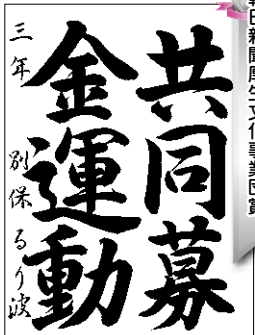 朝日新聞厚生文化事業団賞
共同募
金運動
三年 別保 るり波